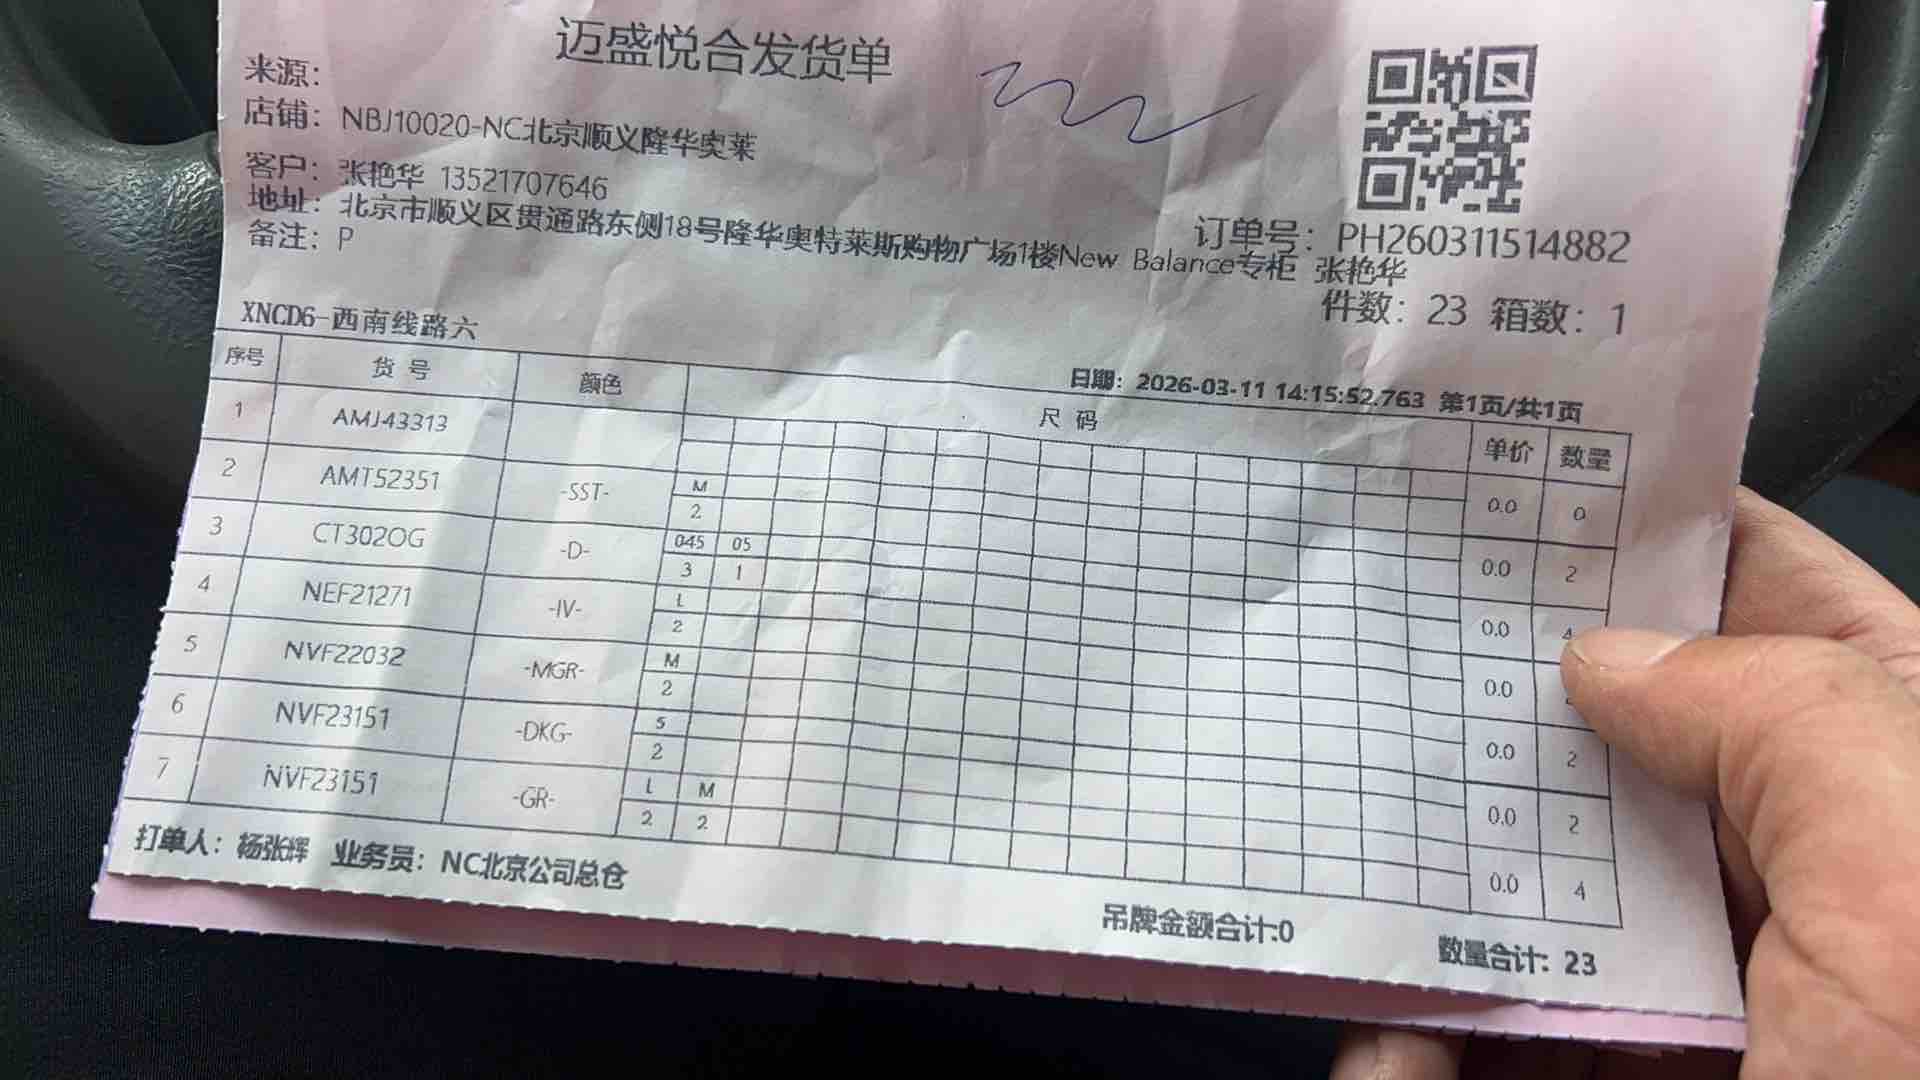 迈盛悦合发货单
来源：
店铺：NBJ10020-NC北京顺义隆华奥莱
客户：张艳华 13521707646
地址：北京市顺义区贯通路东侧18号隆华奥特莱斯购物广场1楼New Balance专柜 张艳华
备注：P
订单号：PH260311514882
件数：23 箱数：1
XNCD6-西南线路六
日期：2026-03-11 14:15:52.763 第1页/共1页
序号 货号 颜色 尺码 单价 数量
1 AMJ43313 0.0 0
2 AMT52351 -SST- M 0.0 2
2
3 CT302OG -D- 045 05 0.0 4
3 1
4 NEF21271 -IV- L 0.0
2
5 NVF22032 -MGR- M 0.0 2
2
6 NVF23151 -DKG- S 0.0 2
2
7 NVF23151 -GR- L M 0.0 4
2 2
打单人：杨张辉 业务员：NC北京公司总仓
吊牌金额合计:0
数量合计：23